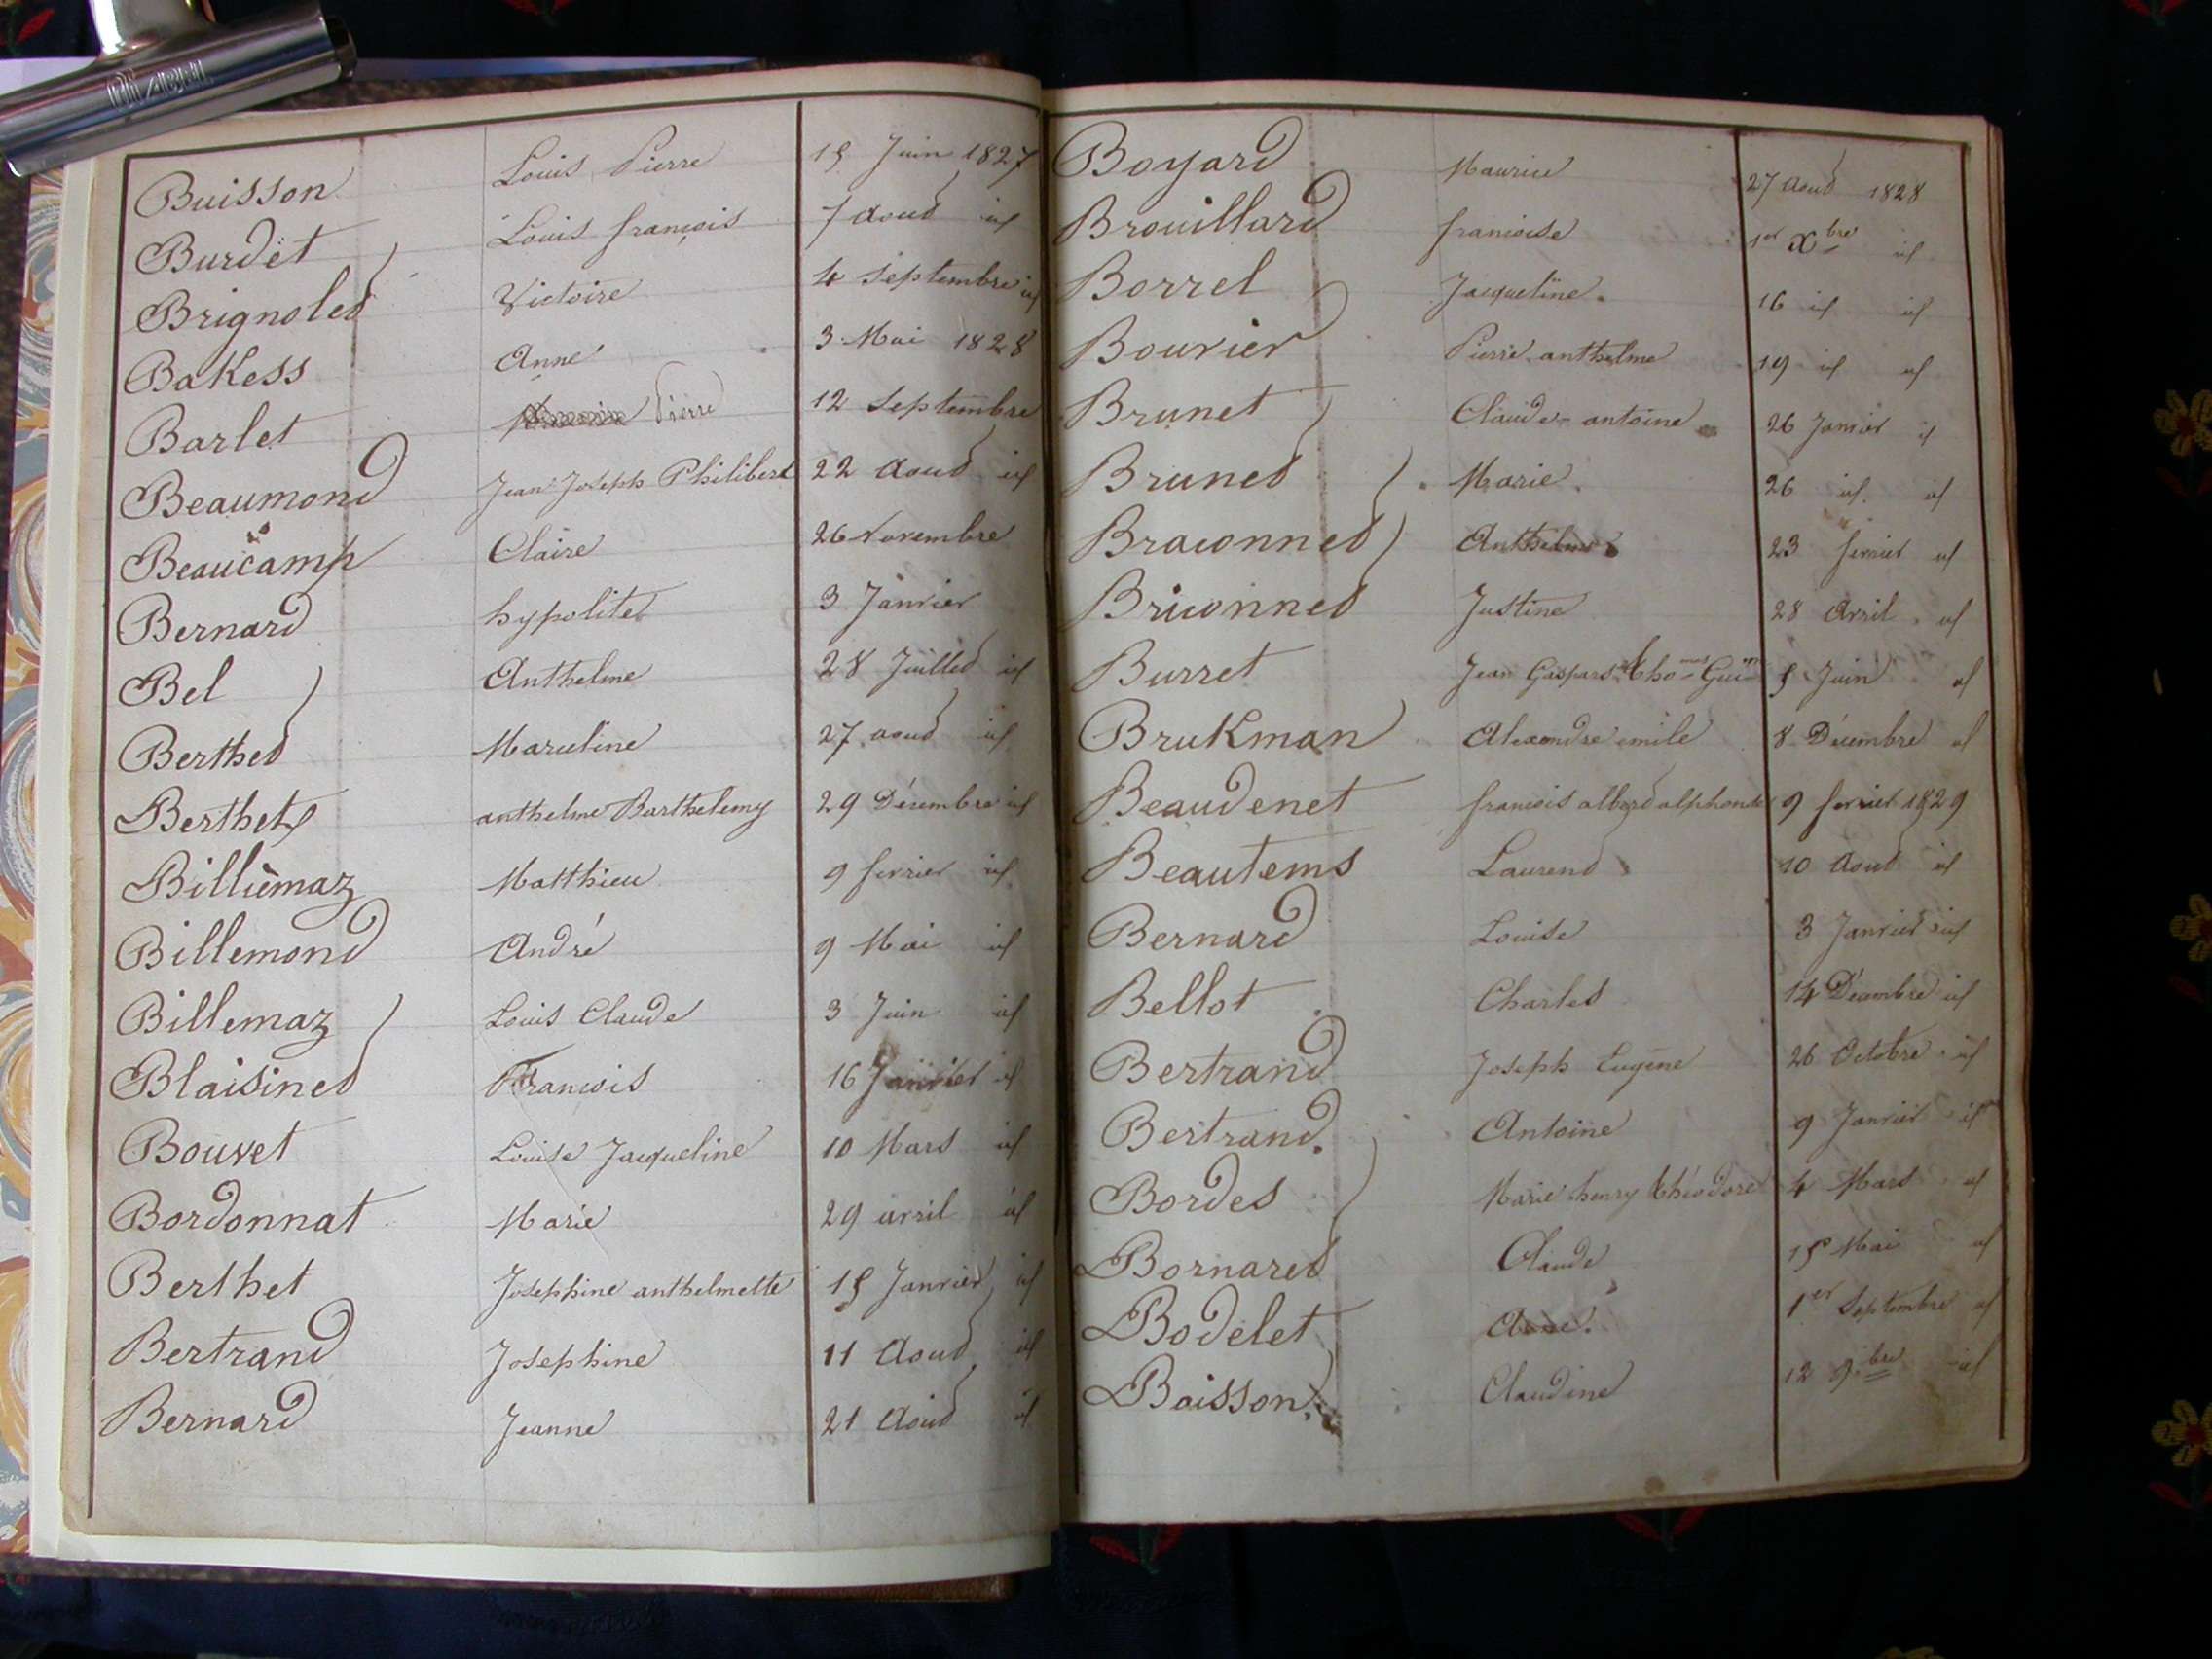 Buisson Louis Pierre 15 Juin 1827
Burdet Louis françois 7 aoud id
Brignoled Victoire 4 Septembre id
Bakess Anne 3 Mai 1828
Barlet Pierre 12 Septembre
Beaumond Jean Joseph Philibert 22 Aoud id
Beaucamp Claire 26 Novembre
Bernard hypolite 3 Janvier
Bel Anthelme 28 Juilled id
Berthed Marceline 27 aoud id
Berthet anthelme Barthelemy 29 Décembre id
Billièmaz Matthieu 9 fevrier id
Billemond André 9 Mai id
Billemaz Louis Claude 3 Juin id
Blaisined Francois 16 Janvier id
Bouvet Louise Jacqueline 10 Mars id
Bordonnat Marie 29 avril id
Berthet Josephine anthelmette 15 Janvier id
Bertrand Josephine 11 Aoud id
Bernard Jeanne 21 Aoud id
Boyard Maurice 27 Aoud 1828
Brouillard francoise 1er Xbre id
Borrel Jacqueline 16 id id
Bouvier Pierre anthelme 19 id id
Brunet Claude antoine 26 Janvier id
Bruned Marie 26 id id
Braconned Anthelme 23 fevrier id
Briconned Justine 28 Avril id
Burret Jean Gaspard 5 Juin id
Brukman Alexandre emile 8 Décembre id
Beaudenet francois alberd alphonse 9 fevrier 1829
Beautems Laurend 10 Aoud id
Bernard Louise 3 Janvier id
Bellot Charles 14 Décembre id
Bertrand Joseph Eugène 26 Octobre id
Bertrand Antoine 9 Janvier id
Bordes Marie henry théodore 4 Mars id
Bornared Claude 15 Mai id
Bodelet 1er Septembre id
Boisson Claudine 12 9bre id